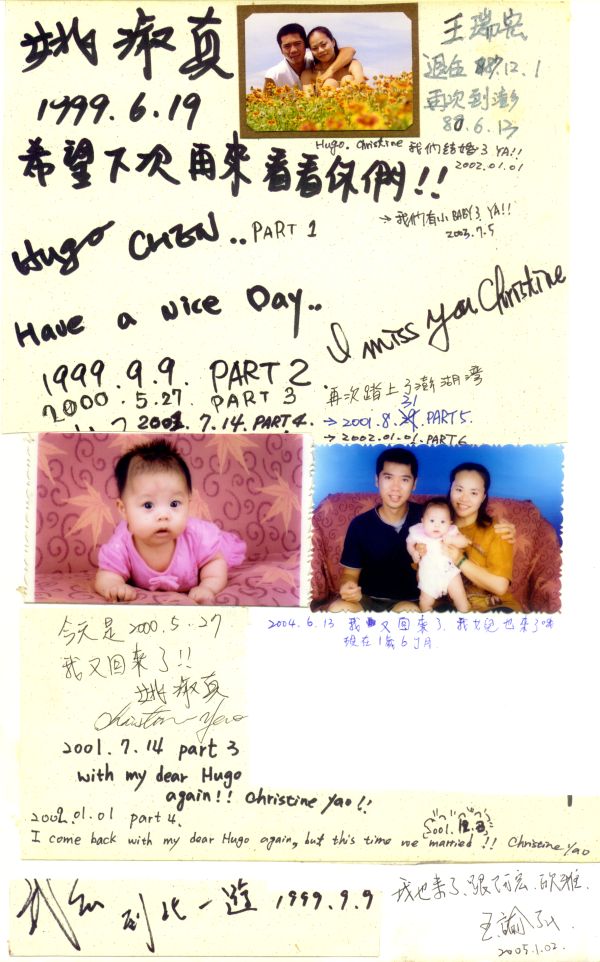 姚淑真
1999.6.19
希望下次再來看看你們!!
王瑞宏
退伍 12.1
再次到澎
6.13
Hugo. Christine 我們結婚了 YA!!
2002.01.01
→ 我們有小BABY了 YA!!
2003.7.5
Hugo CHEN.. PART 1
Have a Nice Day..
I miss you Christine
1999.9.9. PART 2
2000.5.27. PART 3
7.14. PART 4.
再次踏上了澎湖湾
31
→ 2001.8. PART 5.
→ 2002.01.01. PART 6
2004.6.13 我又回來了, 我女兒也來了
現在1歲6個月
今天是2000.5.27
我又回來了!!
姚淑真
Christine Yao
2001.7.14 part 3
with my dear Hugo
again!! Christine Yao!!
2002.01.01 part 4.
2001.
I come back with my dear Hugo again, but this time we married!! Christine Yao
到此一遊 1999.9.9
我也來了,跟
2005.1.02.